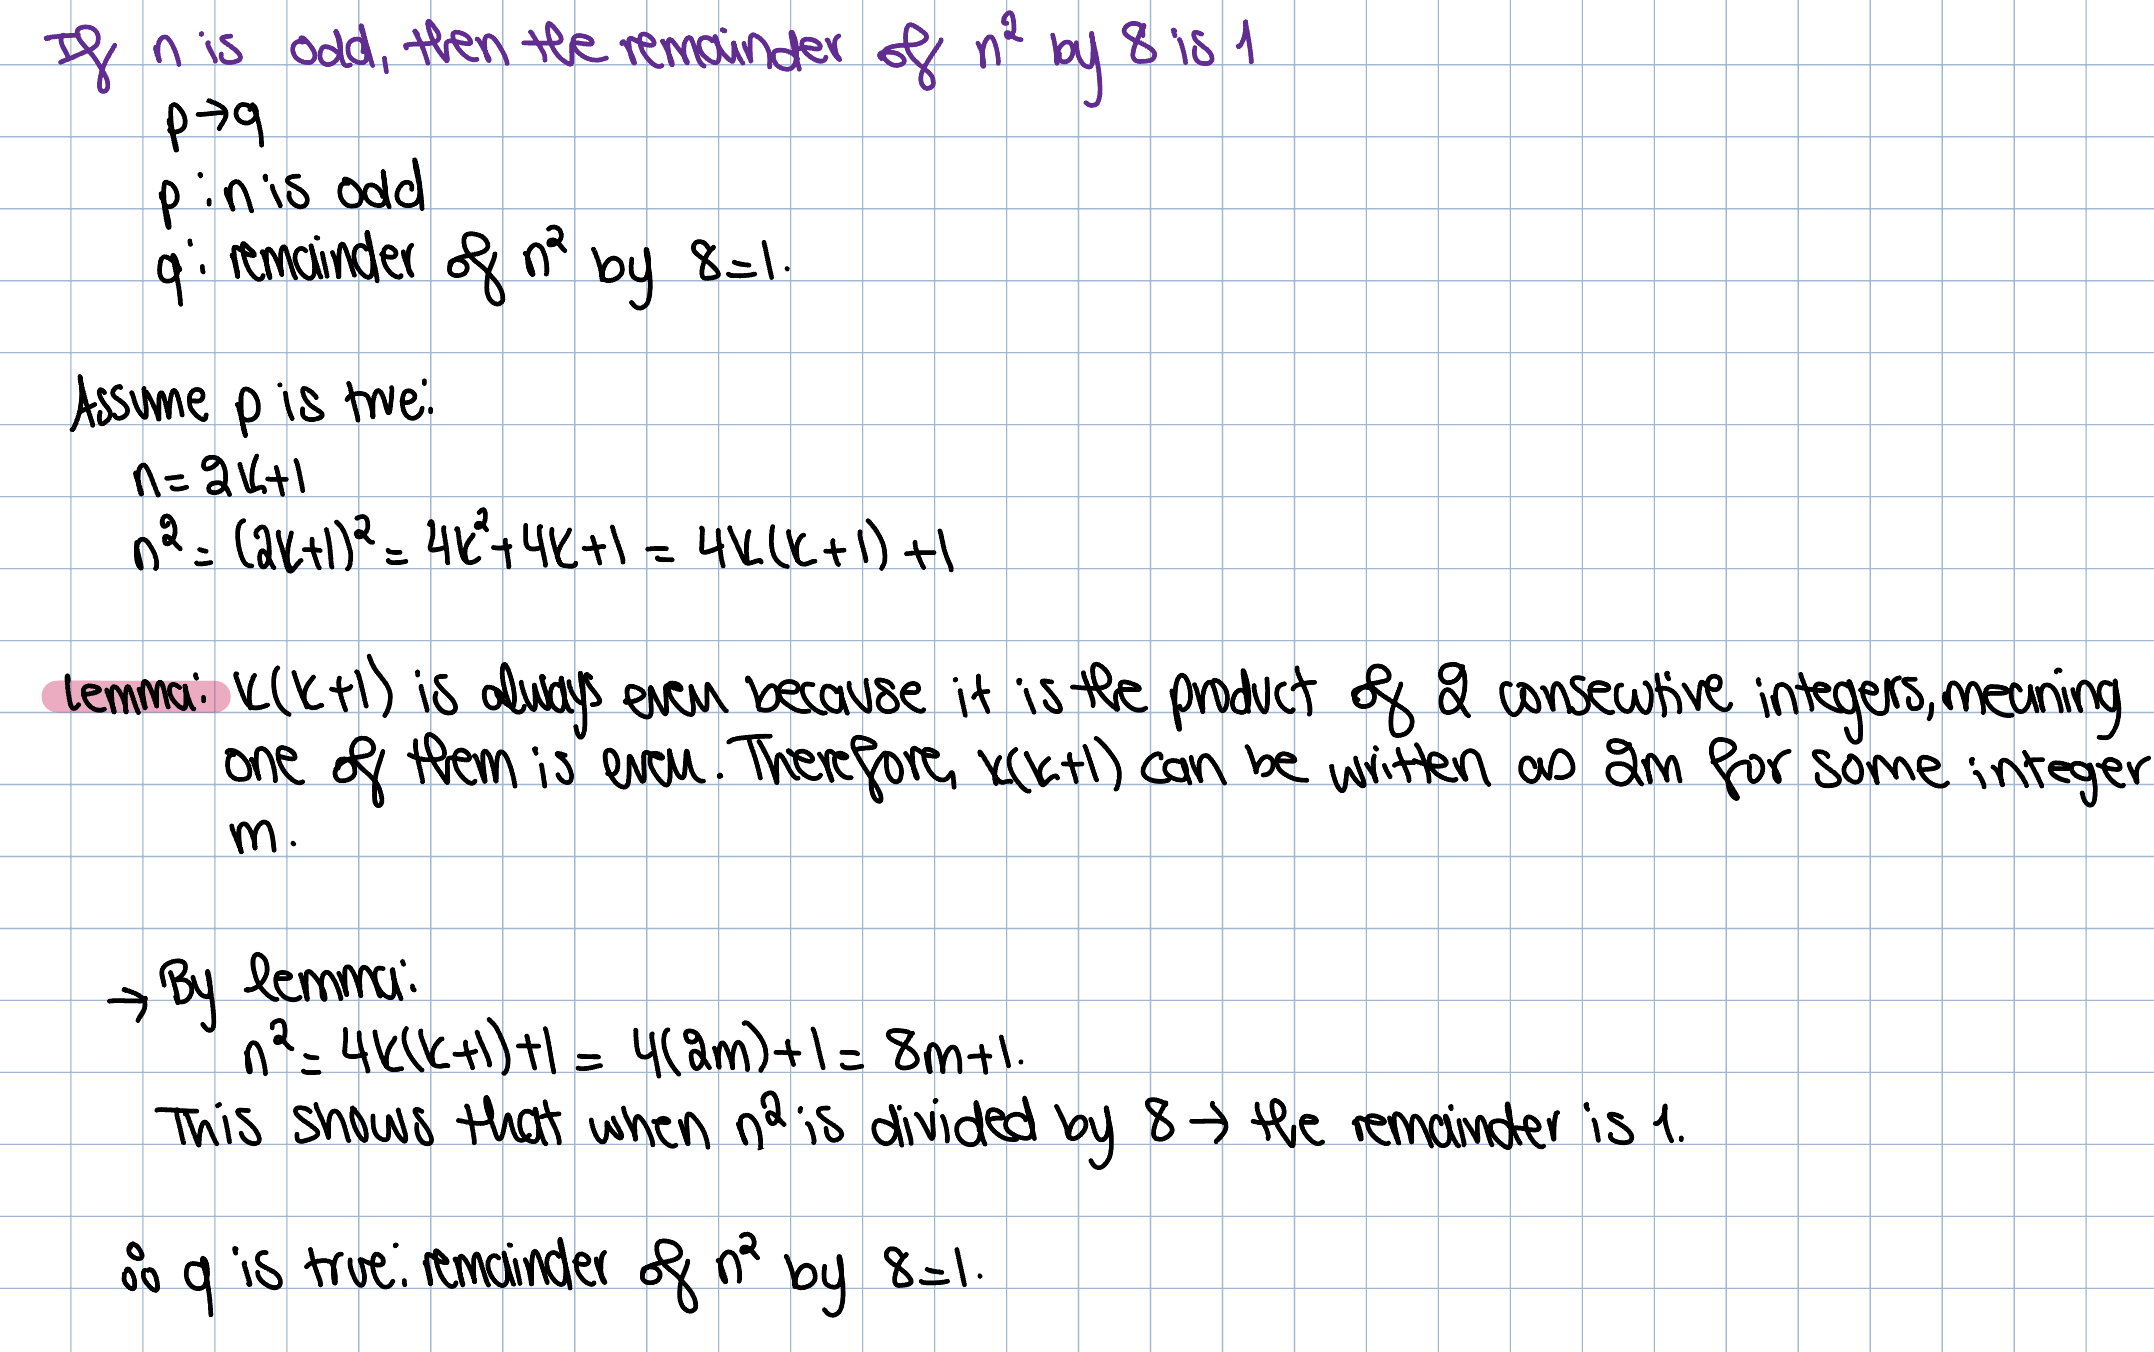 If n is odd, then the remainder of n² by 8 is 1
p→q
p: n is odd
q: remainder of n² by 8=1.
Assume p is true:
n=2k+1
n² = (2k+1)² = 4k²+4k+1 = 4k(k+1)+1
lemma: k(k+1) is always even because it is the product of 2 consecutive integers, meaning
one of them is even. Therefore, k(k+1) can be written as 2m for some integer
m.
→ By lemma:
n² = 4k(k+1)+1 = 4(2m)+1 = 8m+1.
This shows that when n² is divided by 8 → the remainder is 1.
∴ q is true: remainder of n² by 8=1.